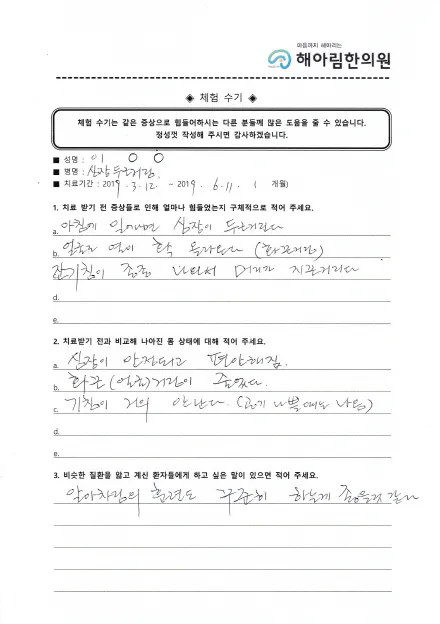 마음까지 헤아리는
해아림한의원
◈ 체험 수기 ◈
체험 수기는 같은 증상으로 힘들어하시는 다른 분들께 많은 도움을 줄 수 있습니다.
정성껏 작성해 주시면 감사하겠습니다.
■ 성명 : 이 O O
■ 병명 : 심장 두근거림.
■ 치료기간 : 2019. 3. 12. ~ 2019. 6. 11. ( 개월)
1. 치료 받기 전 증상들로 인해 얼마나 힘들었는지 구체적으로 적어 주세요.
a. 아침에 일어나면 심장이 두근거린다
b. 얼굴로 열이 확 올라온다 (화끈거림)
잔기침이 종종 나면서 머리가 지끈거린다
d.
e.
2. 치료받기 전과 비교해 나아진 몸 상태에 대해 적어 주세요.
a. 심장이 안정되고 편안해짐.
b. 화끈(얼굴)거림이 줄었다.
c. 기침이 거의 안난다. (공기 나쁠때만 나옴)
d.
e.
3. 비슷한 질환을 앓고 계신 환자들에게 하고 싶은 말이 있으면 적어 주세요.
훈련도 꾸준히 하는게 좋을것 같다